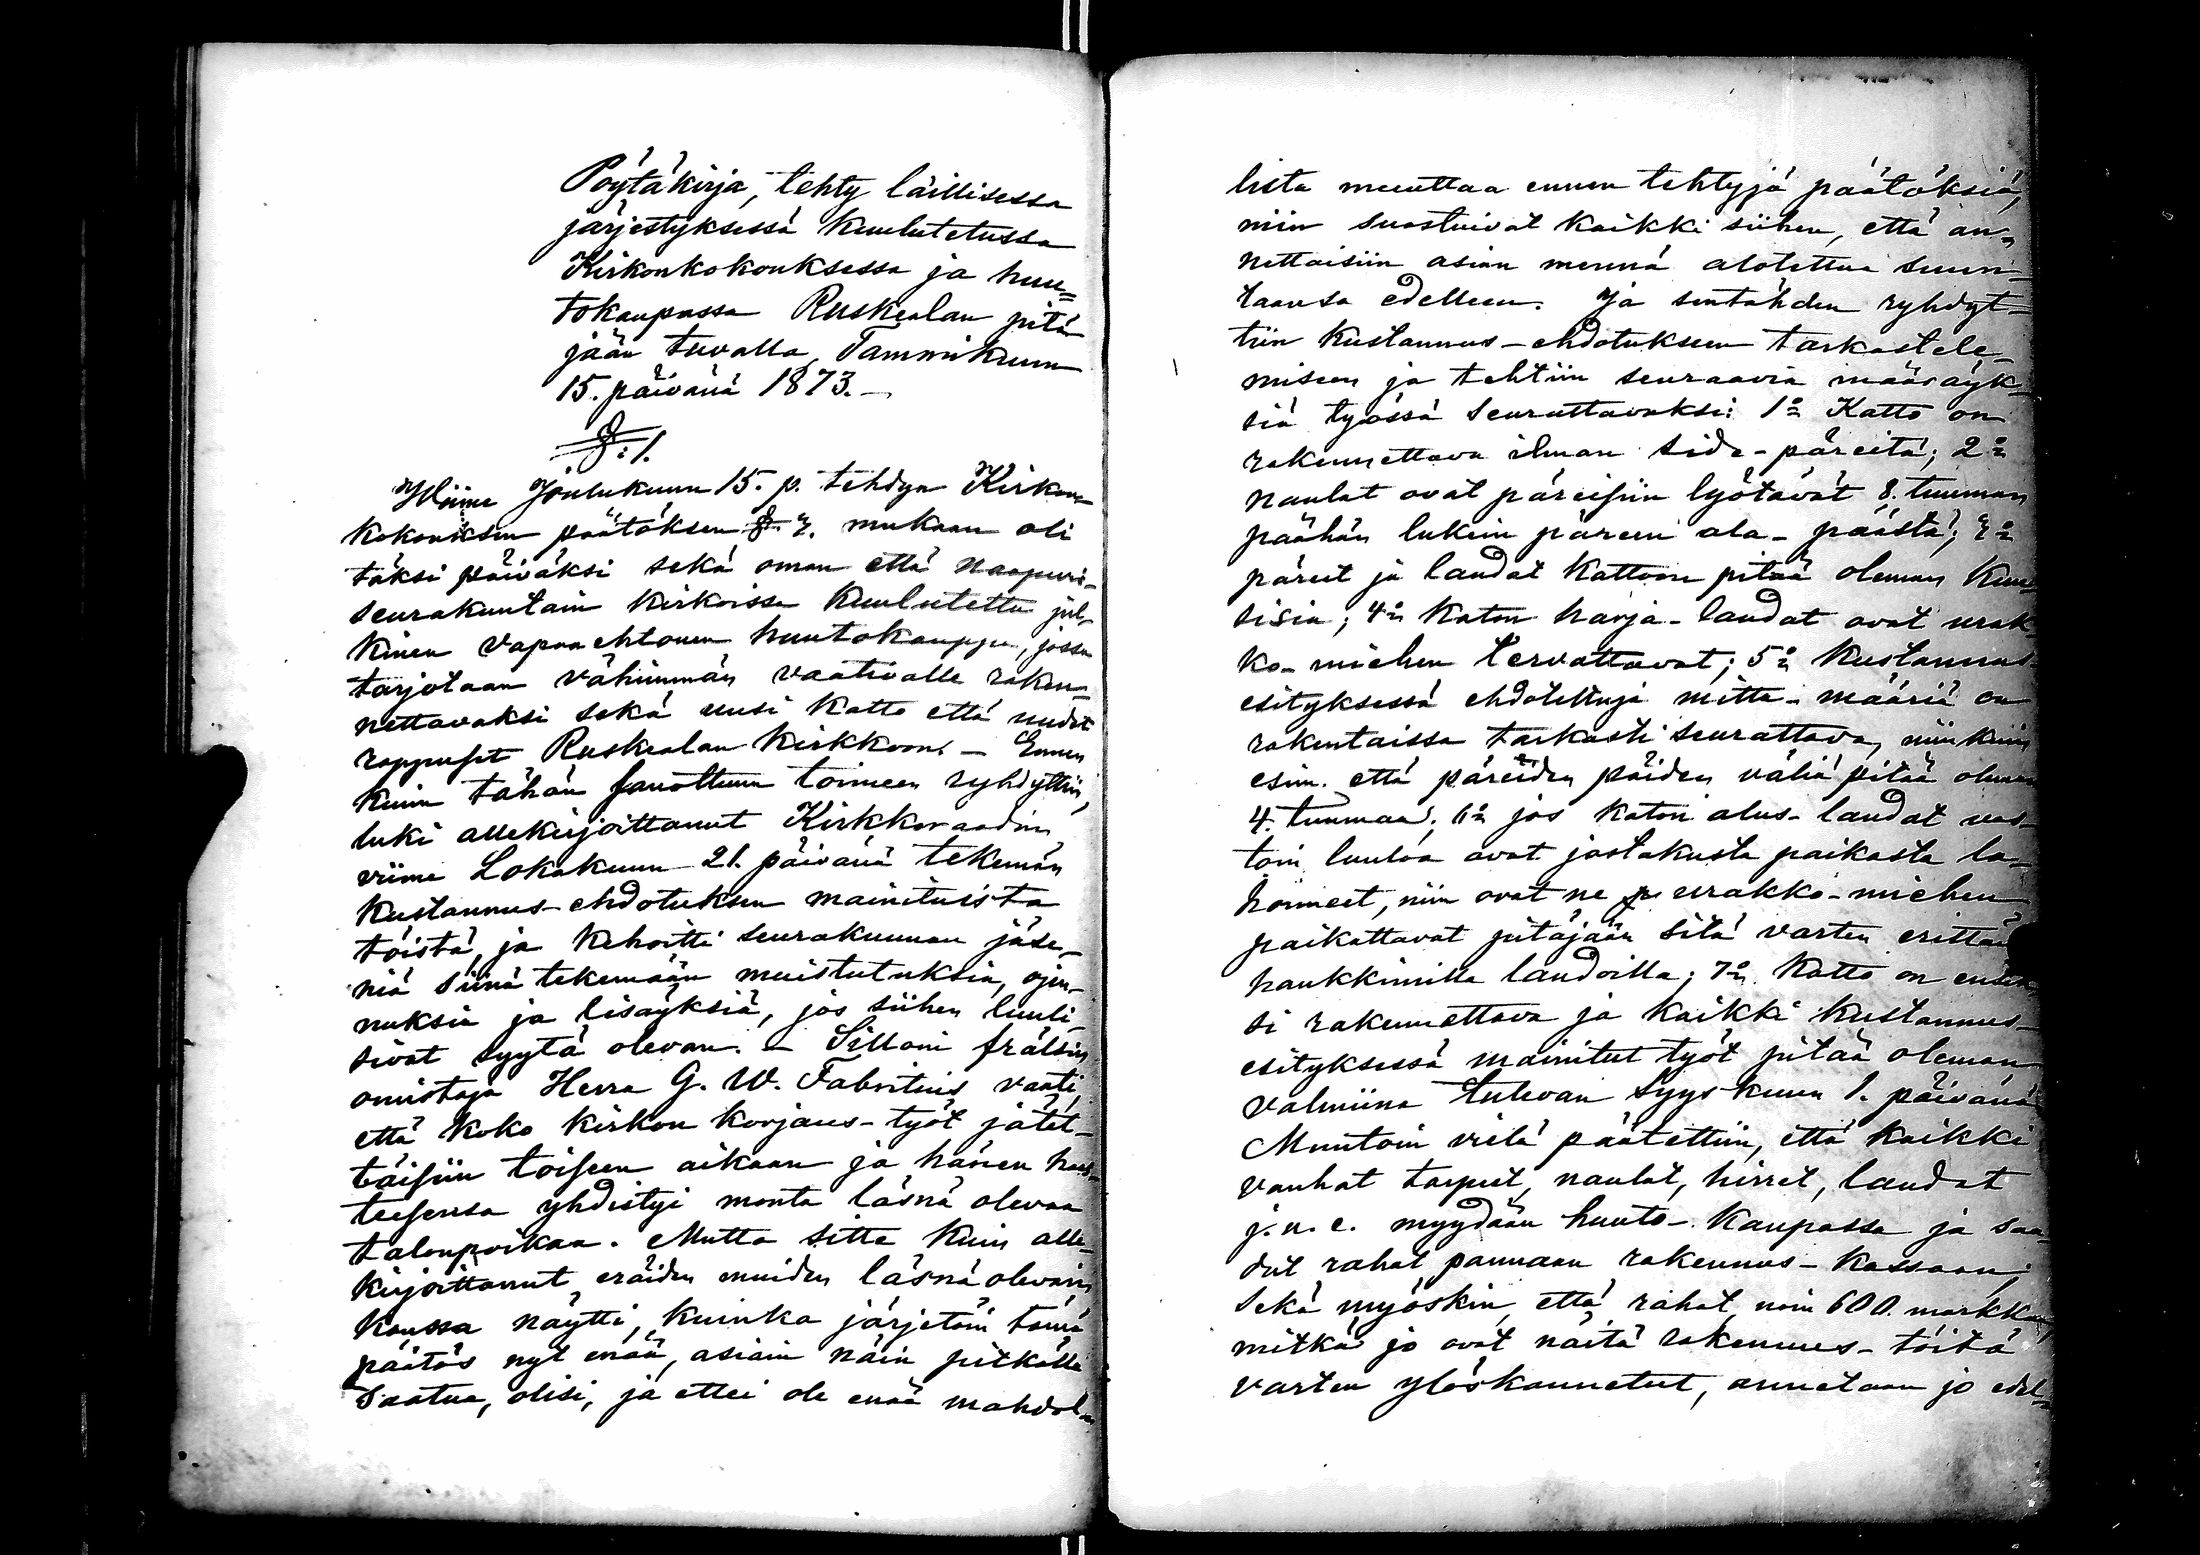 Pöytäkirja, tehty laillisessa
järjestyksessä kuulutetussa
Kirkonkokouksessa ja huu=
tokaupassa Ruskealan pitä
jään tuvalla, Tammikuun
15. päivänä 1873. —
§. 1.
Wiime Joulukuun 15. p. tehdyn Kirkon
kokouksen päätöksen §. 3. mukaan oli
täksi päiväksi sekä oman että naapuri-
seurakuntain kirkoissa kuulutettu jul-
kinen vapaaehtonen huutokauppa, jossa
tarjotaan vähimmän vaativalle raken-
nettavaksi sekä uusi katto että uudet
rappuset Ruskealan kirkkoon. — Ennen
kuin tähän sanottuun toimeen ryhdyttiin,
luki allekirjoittanut Kirkkoraadin
viime Lokakuun 21. päivänä tekemän
kustannus-ehdotuksen mainituista
töistä, ja kehoitti seurakunnan jäse-
niä siinä tekemään muistutuksia, ojen-
nuksia ja lisäyksiä, jos siihen luuli-
sivat syytä olevan. — Silloin frälsin
omistaja Herra G. W. Fabritius vaati,
että koko kirkon korjaus-työt jätet-
täisiin toiseen aikaan ja hänen haas-
teesensa yhdistyi monta läsnä olevaa
talonpoikaa. Mutta sitte kuin alle-
kirjoittanut eräiden muiden läsnä olevain
kanssa näytti, kuinka järjetöin tämä
päätös nyt enää, asiain näin pitkälle
saatua, olisi, ja ettei ole enää mahdol-
lista muuttaa ennen tehtyjä päätöksiä,
niin suostuivat kaikki siihen, että an-
nettaisiin asian mennä alotettua suun-
taansa edelleen. Ja sentähden ryhdyt-
tiin kustannus-ehdotuksen tarkastele-
miseen ja tehtiin seuraavia määräyk-
siä työssä seurattavaksi: 1:o Katto on
rakennettava ilman side-päreitä; 2:o
naulat ovat päreisiin lyötävät 8. tuuman
päähän lukein päreen ala-päästä; 3:o
päreet ja laudat kattoon pitää oleman kuu-
sisia; 4:o katon harja-laudat ovat urak-
ko-miehen tervattavat; 5:o Kustannus-
esityksessä ehdotettuja mitta-määriä on
rakentaissa tarkasti seurattava, niinkuin
esim. että päreiden päiden väliä pitää oleman
4. tuumaa; 6:o jos katon alus-laudat vas-
toin luuloa ovat jostakusta paikasta la-
honneet, niin ovat ne urakko-miehen
paikattavat pitäjään sitä varten erittäin
hankkimilla laudoilla; 7:o Katto on ensin-
si rakennettava ja kaikki kustannus-
esityksessä mainitut työt pitää oleman
valmiina tulevan Syyskuun 1. päivänä
Muutoin vielä päätettiin, että kaikki
vanhat tarpeet, naulat, hirret, laudat
j. n. e. myydään huuto-kaupassa ja saa-
dut rahat pannaan rakennus-kassaan;
sekä myöskin, että rahat noin 600. markkaa,
mitkä jo ovat näitä rakennus-töitä
varten ylöskannetut, annetaan jo edel-